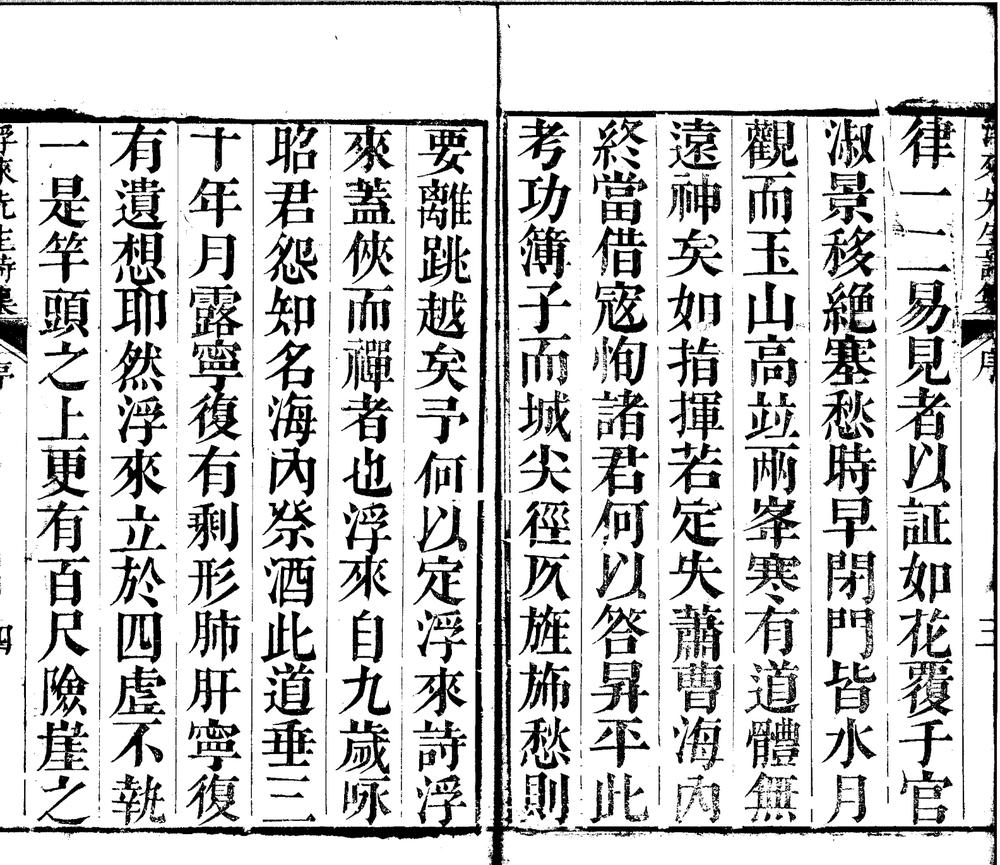 律一二易見者以証如花覆千官
淑景移絕塞愁時早閉門皆水月
觀而玉山高竝兩峯寒有道體無
遠神矣如指揮若定失蕭曹海內
終當借寇恂諸君何以答昇平此
考功簿子而城尖徑仄旌旆愁則
要離跳越矣予何以定浮來詩浮
來蓋俠而禪者也浮來自九歲咏
昭君怨知名海內祭酒此道垂三
十年月露寧復有剩形肺肝寧復
有遺想耶然浮來立於四虛不執
一是竿頭之上更有百尺險崖之
浮來先生詩集
序
四